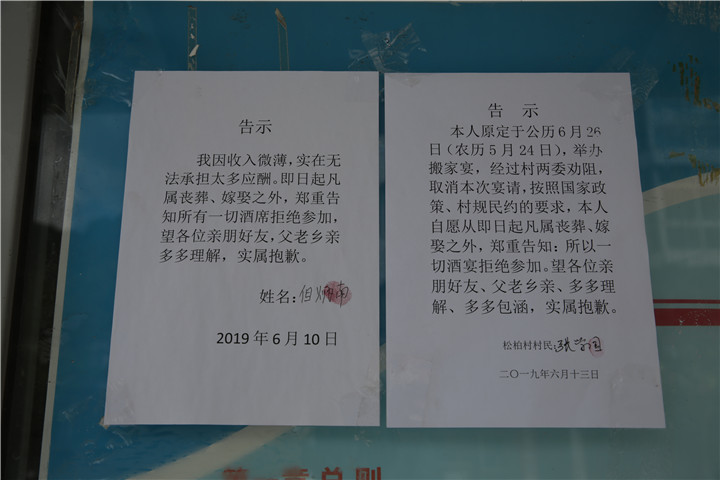 告示
我因收入微薄，实在无
法承担太多应酬。即日起凡
属丧葬、嫁娶之外，郑重告
知所有一切酒席拒绝参加，
望各位亲朋好友，父老乡亲
多多理解，实属抱歉。
姓名：但
南
2019年6月10日
告 示
本人原定于公历6月26
日（农历5月24日），举办
搬家宴，经过村两委劝阻，
取消本次宴请，按照国家政
策、村规民约的要求，本人
自愿从即日起凡属丧葬、嫁
娶之外，郑重告知：所以一
切酒宴拒绝参加。望各位亲
朋好友、父老乡亲、多多理
解、多多包涵，实属抱歉。
松柏村村民
二〇一九年六月十三日
第一章总则